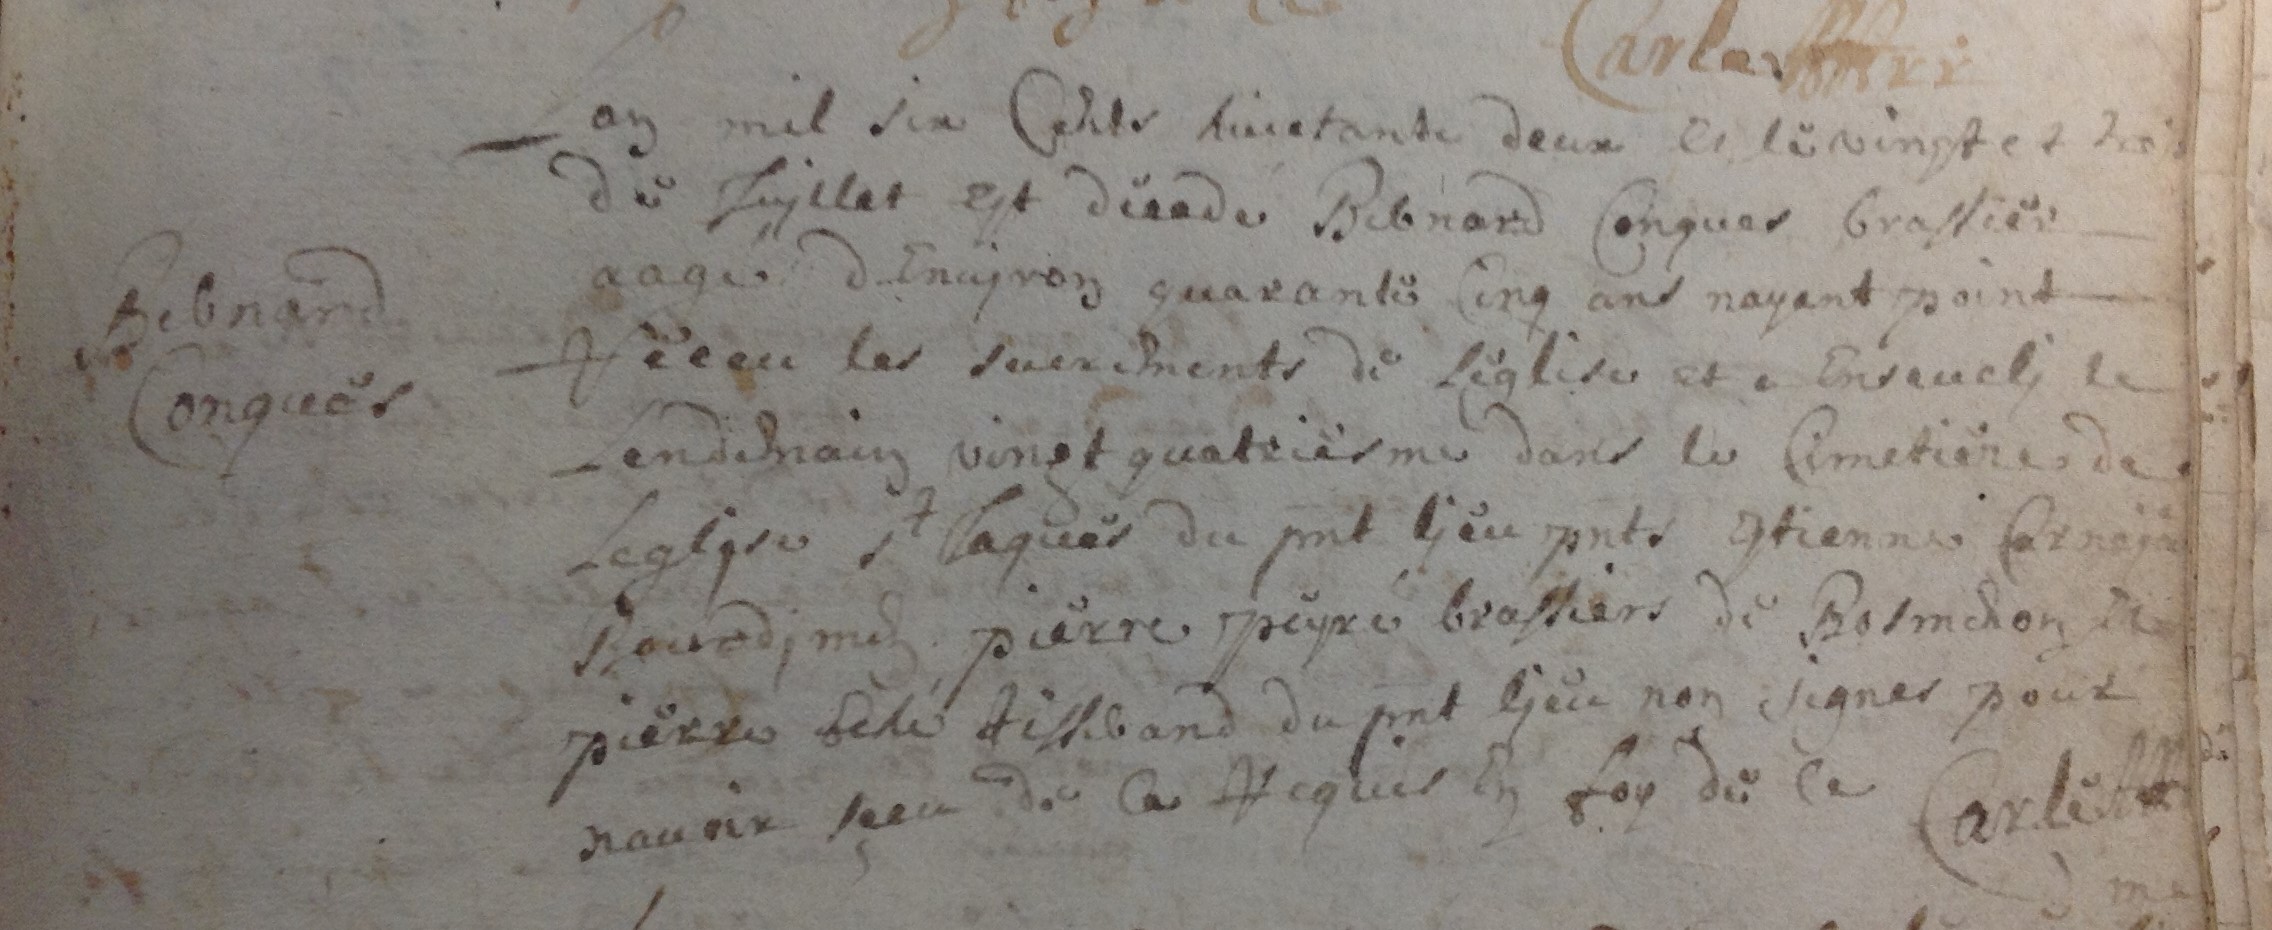 Carle
Lan mil six Cents huictante deux et le vingt et trois
du Juyllet est dicedé Bebnard Conques brassier
aagé d'Enuiron quarante Cinq ans nayant point
Bebnard
Conques
receu les sacrements de Leglise et a Enseuelj le
Lendemain vingt quatriesme dans le Cimetiere de
Leglyse st Jaques du pnt ljeu pnts Estienne
pierre peyré brassiers de
pierre tisseband du pnt ljeu non signes pour
nauoir sceu de ce requis En foy de ce Carle